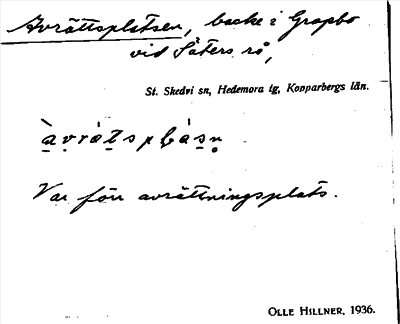 Avrättsplatsen, backe i Grapbo
vid Säters rå,
St. Skedvi sn, Hedemora tg, Kopparbergs län.
àvràtsplàsn̥
Var förr avrättningsplats.
OLLE HILLNER, 1936.